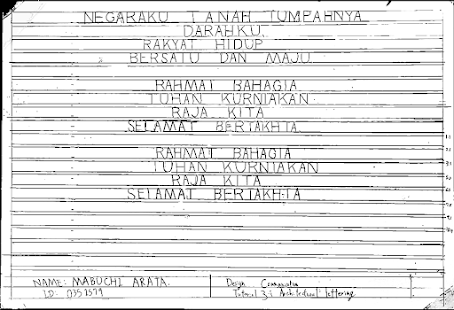 NEGARAKU TANAH TUMPAHNYA
DARAHKU
RAKYAT HIDUP
BERSATU DAN MAJU
RAHMAT BAHAGIA
TUHAN KURNIAKAN
RAJA KITA
SELAMAT BERTAKHTA
RAHMAT BAHAGIA
TUHAN KURNIAKAN
RAJA KITA
SELAMAT BERTAKHTA
NAME: MABUCHI ARATA
ID: 0351579
Design Communication
Tutorial 3: Architectural lettering